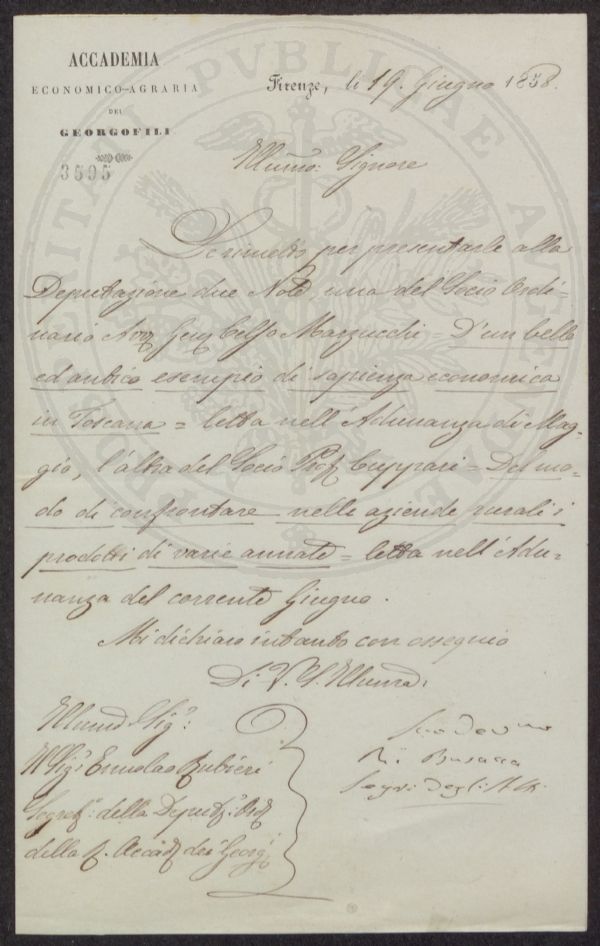 ACCADEMIA
ECONOMICO-AGRARIA
DEI
GEORGOFILI
3595
Firenze, li 19. Giugno 1858.
Illumo: Signore
Le rimetto per presentarle alla
Deputazione due Note, una del Socio Ordi=
nario Avv Celso Marzucchi = D'un bello
ed antico esempio di sapienza economica
in Toscana = letta nell'Adunanza di Mag=
gio, l'altra del Socio Prof Cuppari = Del mo=
do di confrontare nelle aziende rurali i
prodotti di varie annate = letta nell'Adu=
nanza del corrente Giugno.
Mi dichiaro intanto con ossequio
Di V. S. Illuma
Sig:
Il Sigr Ermolao Rubieri
Segreto: della Depute: Ord
della R. Accad dei Georg:
R. Busacca
Segr: degli Atti
PUBLICAE